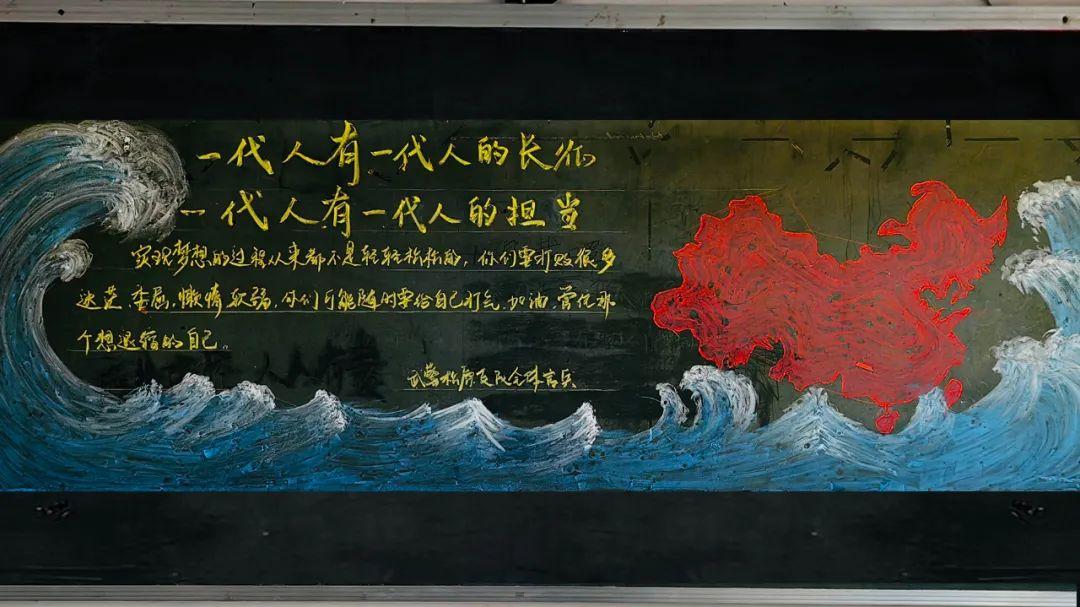 一代人有一代人的长征
一代人有一代人的担当
实现梦想的过程从来都不是轻轻松松的，你们要打败很多
迷茫、委屈、懒惰、软弱，你们可能随时要给自己打气、加油，管住那
个想退缩的自己。
武警松原支队全体官兵